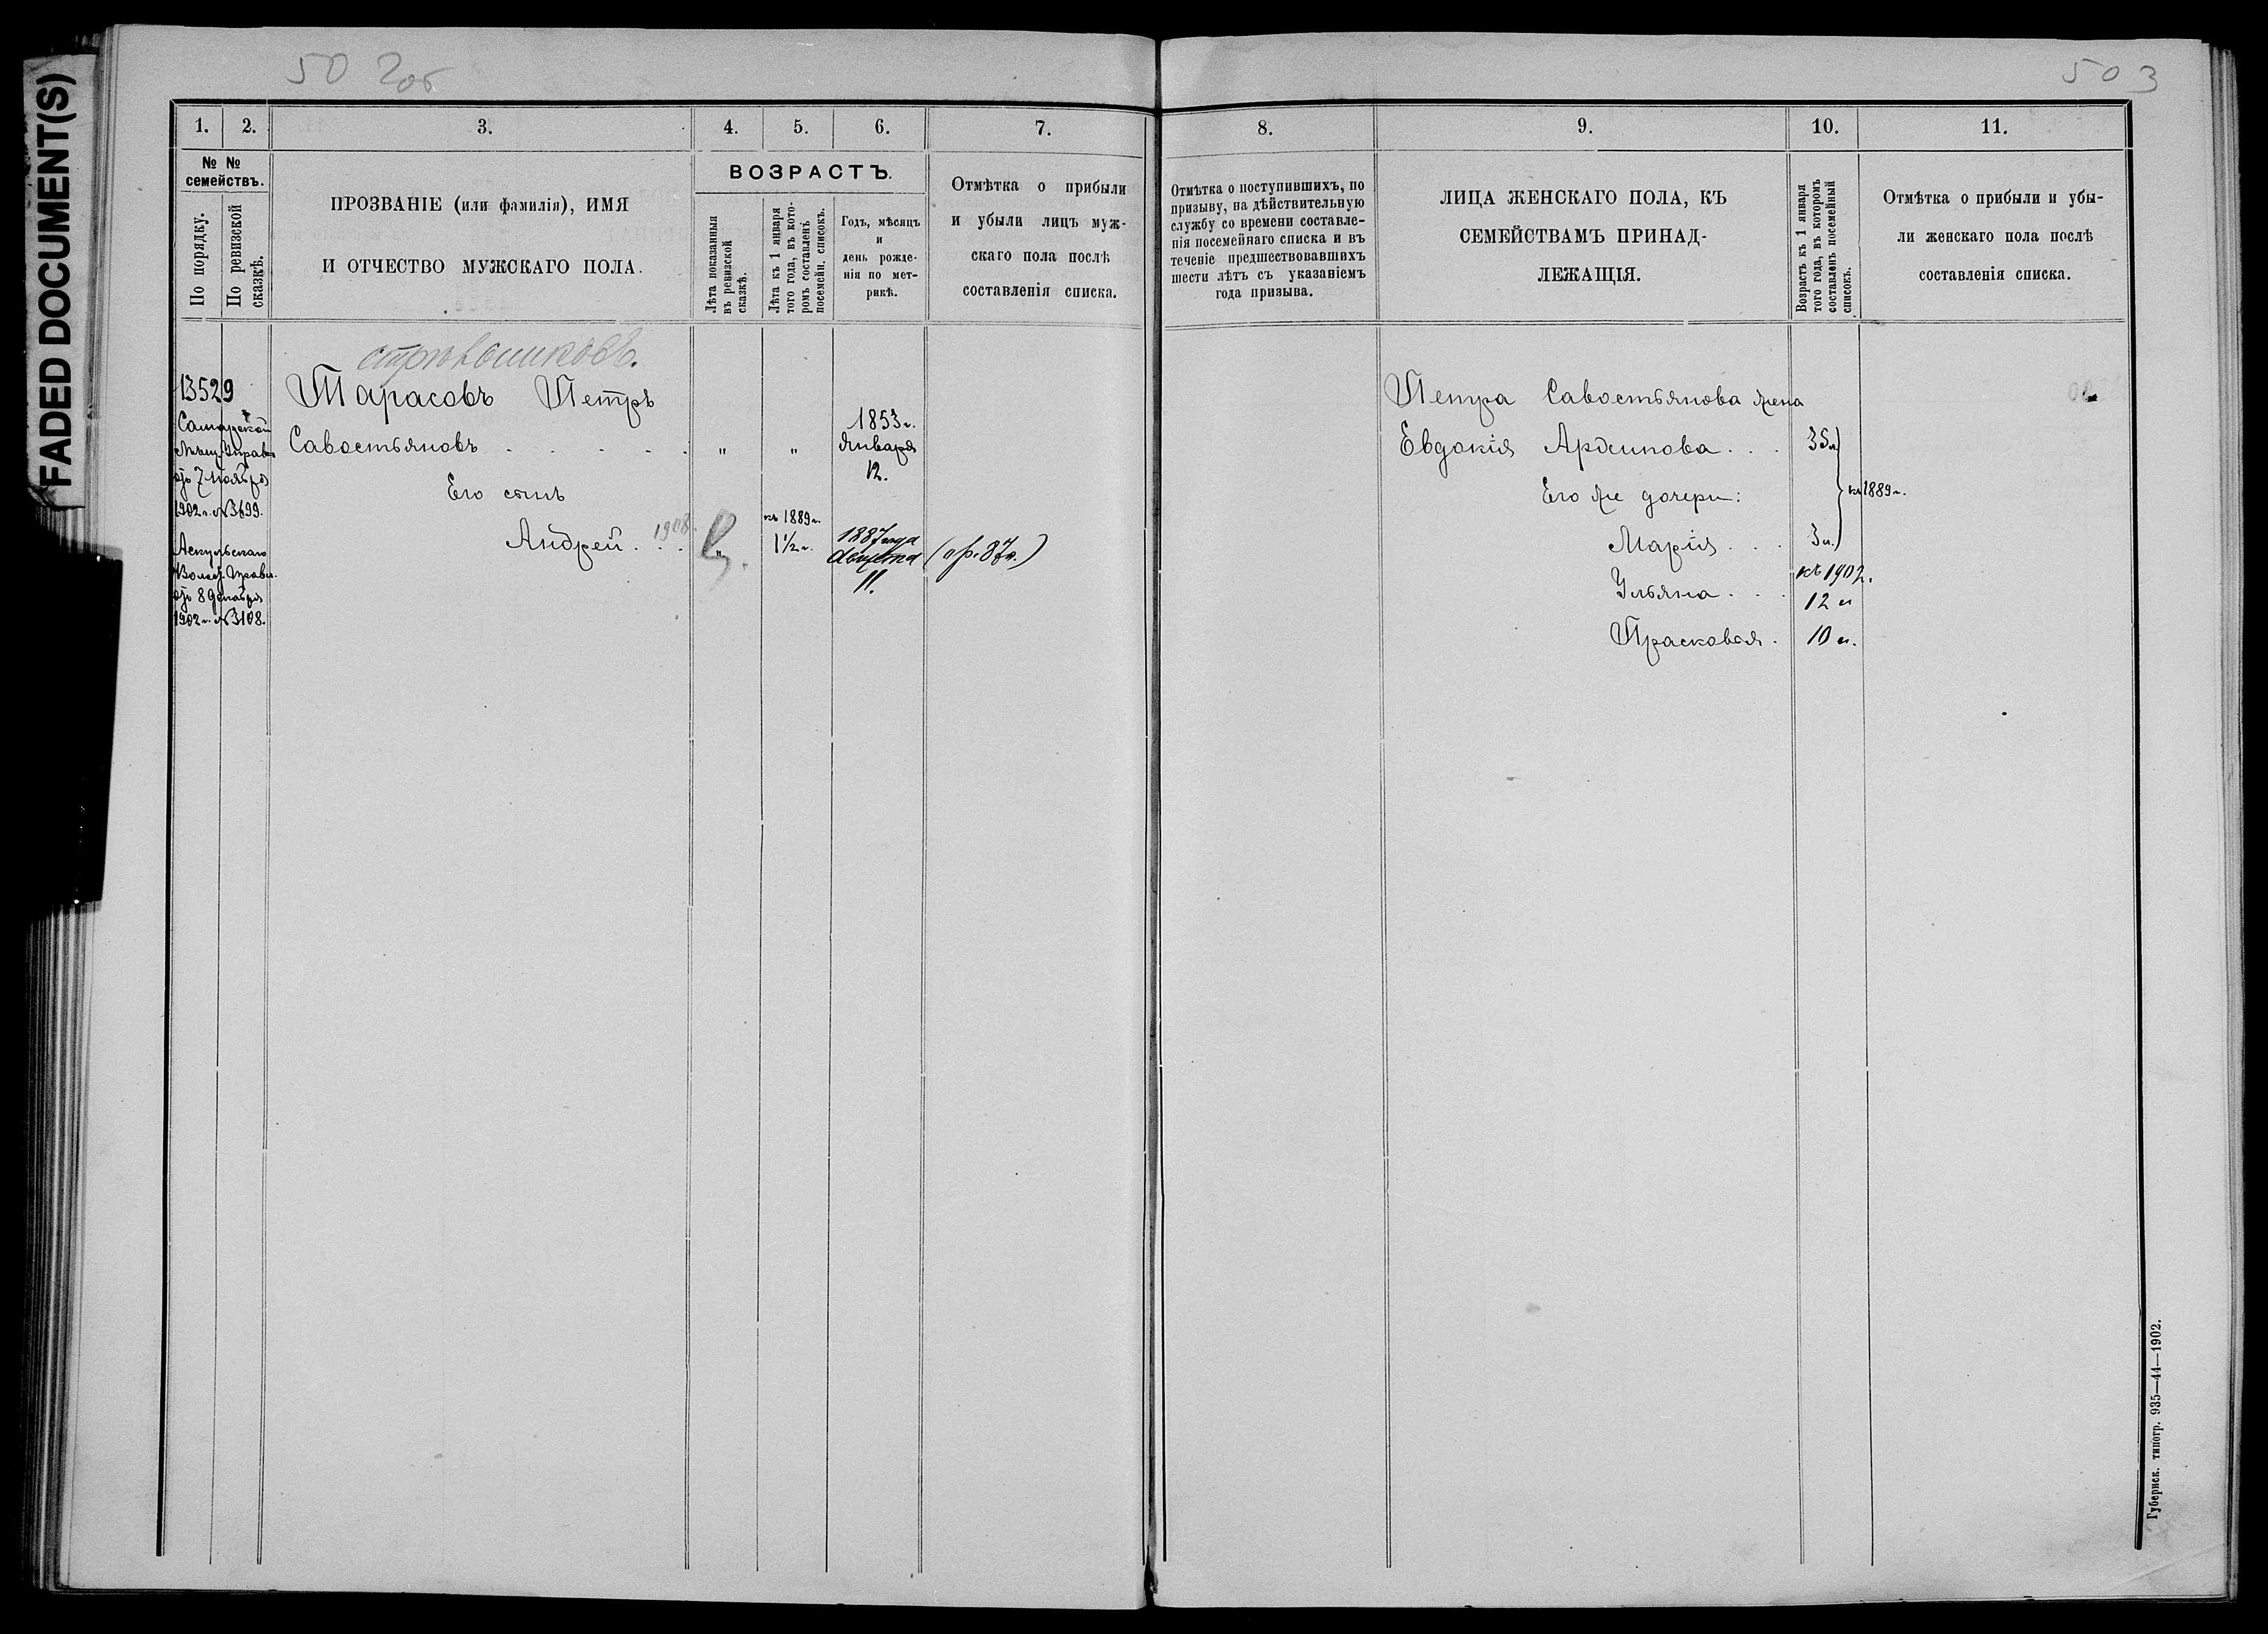 FADED DOCUMENT(S)
50 2об
1.
2.
3.
4.
5.
6.
7.
№ №
семействъ.
По порядку.
По ревизской
сказкѣ.
ПРОЗВАНІЕ (или фамилія), ИМЯ
И ОТЧЕСТВО МУЖСКАГО ПОЛА.
ВОЗРАСТЪ.
Лѣта показанныя
въ ревизской
сказкѣ.
Лѣта къ 1 января
того года, въ кото-
ромъ составленъ
посемейн. списокъ.
Годъ, мѣсяцъ
и
день рожде-
нія по мет-
рикѣ.
Отмѣтка о прибыли
и убыли лицъ муж-
скаго пола послѣ
составленія списка.
13529
Самарской
Мѣщ. Управы
отъ 7 ноября
1902 г. № 3699.
Аскульскаго
Волост. Правл.
отъ 8 декабря
1902 г. № 3108.
Тарасовъ Петръ
Савостьяновъ . . . . . " "
1853 г.
Января
12.
Его сынъ
Андрей . . . 1908. "
къ 1889 г.
1 1/2 г.
1887 года
Августа
11.
(о р. 87 г.)
503
8.
9.
10.
11.
Отмѣтка о поступившихъ, по
призыву, на дѣйствительную
службу со времени составле-
нія посемейнаго списка и въ
теченіе предшествовавшихъ
шести лѣтъ съ указаніемъ
года призыва.
ЛИЦА ЖЕНСКАГО ПОЛА, КЪ
СЕМЕЙСТВАМЪ ПРИНАД-
ЛЕЖАЩІЯ.
Возрастъ къ 1 января
того года, въ которомъ
составленъ посемейный
списокъ.
Отмѣтка о прибыли и убы-
ли женскаго пола послѣ
составленія списка.
Петра Савостьянова жена
Евдокія . . . 35 л
Его же дочери: къ 1889 г.
Марія . . . 3 л.
къ 1902.
Ульяна . . . 12 л
Прасковья . 10 л.
Губернск. типогр. 935—44—1902.